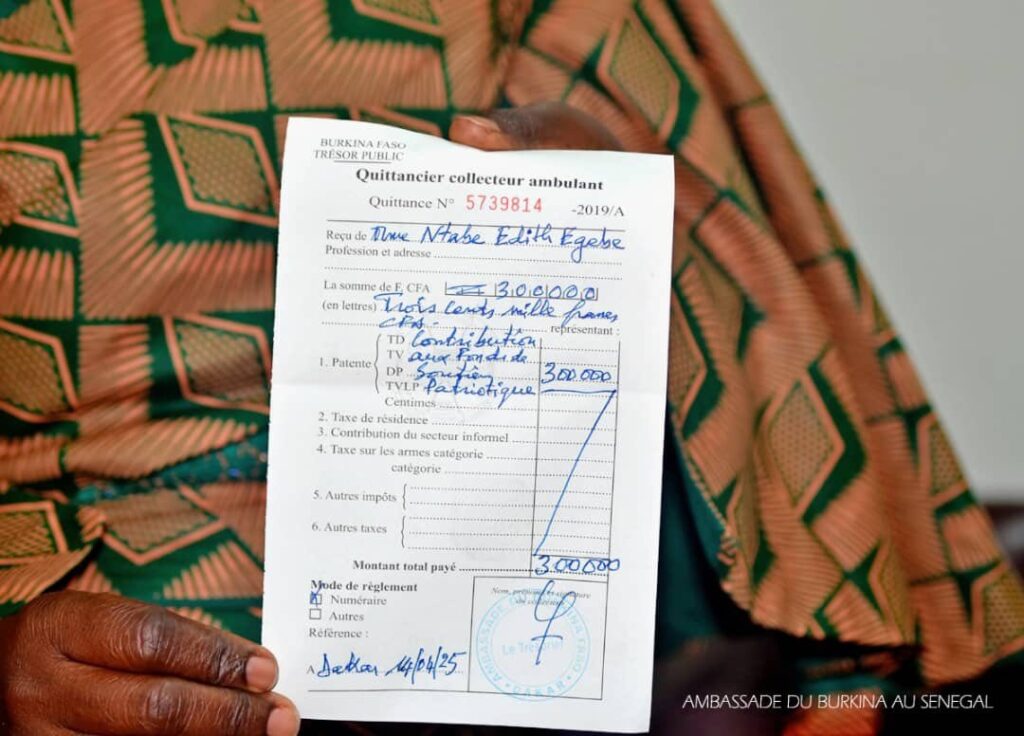 BURKINA FASO
TRÉSOR PUBLIC
Quittancier collecteur ambulant
Quittance N° 5739814 -2019/A
Reçu de Mme Ntabe Edith Egebe
Profession et adresse
La somme de F. CFA 300000
(en lettres) Trois cents mille francs
CFA. représentant :
TD Contribution
TV aux Fonds de
1. Patente DP Soutien 300000
TVLP Patriotique
Centimes
2. Taxe de résidence
3. Contribution du secteur informel
4. Taxe sur les armes catégorie
catégorie
5. Autres impôts
6. Autres taxes
Montant total payé 300000
Mode de règlement
Numéraire
Autres
Référence :
A Dakar 14/04/25
Nom, prénoms et signature
du collecteur
AMBASSADE DU BURKINA FASO
Le Trésorier
DAKAR
AMBASSADE DU BURKINA AU SENEGAL